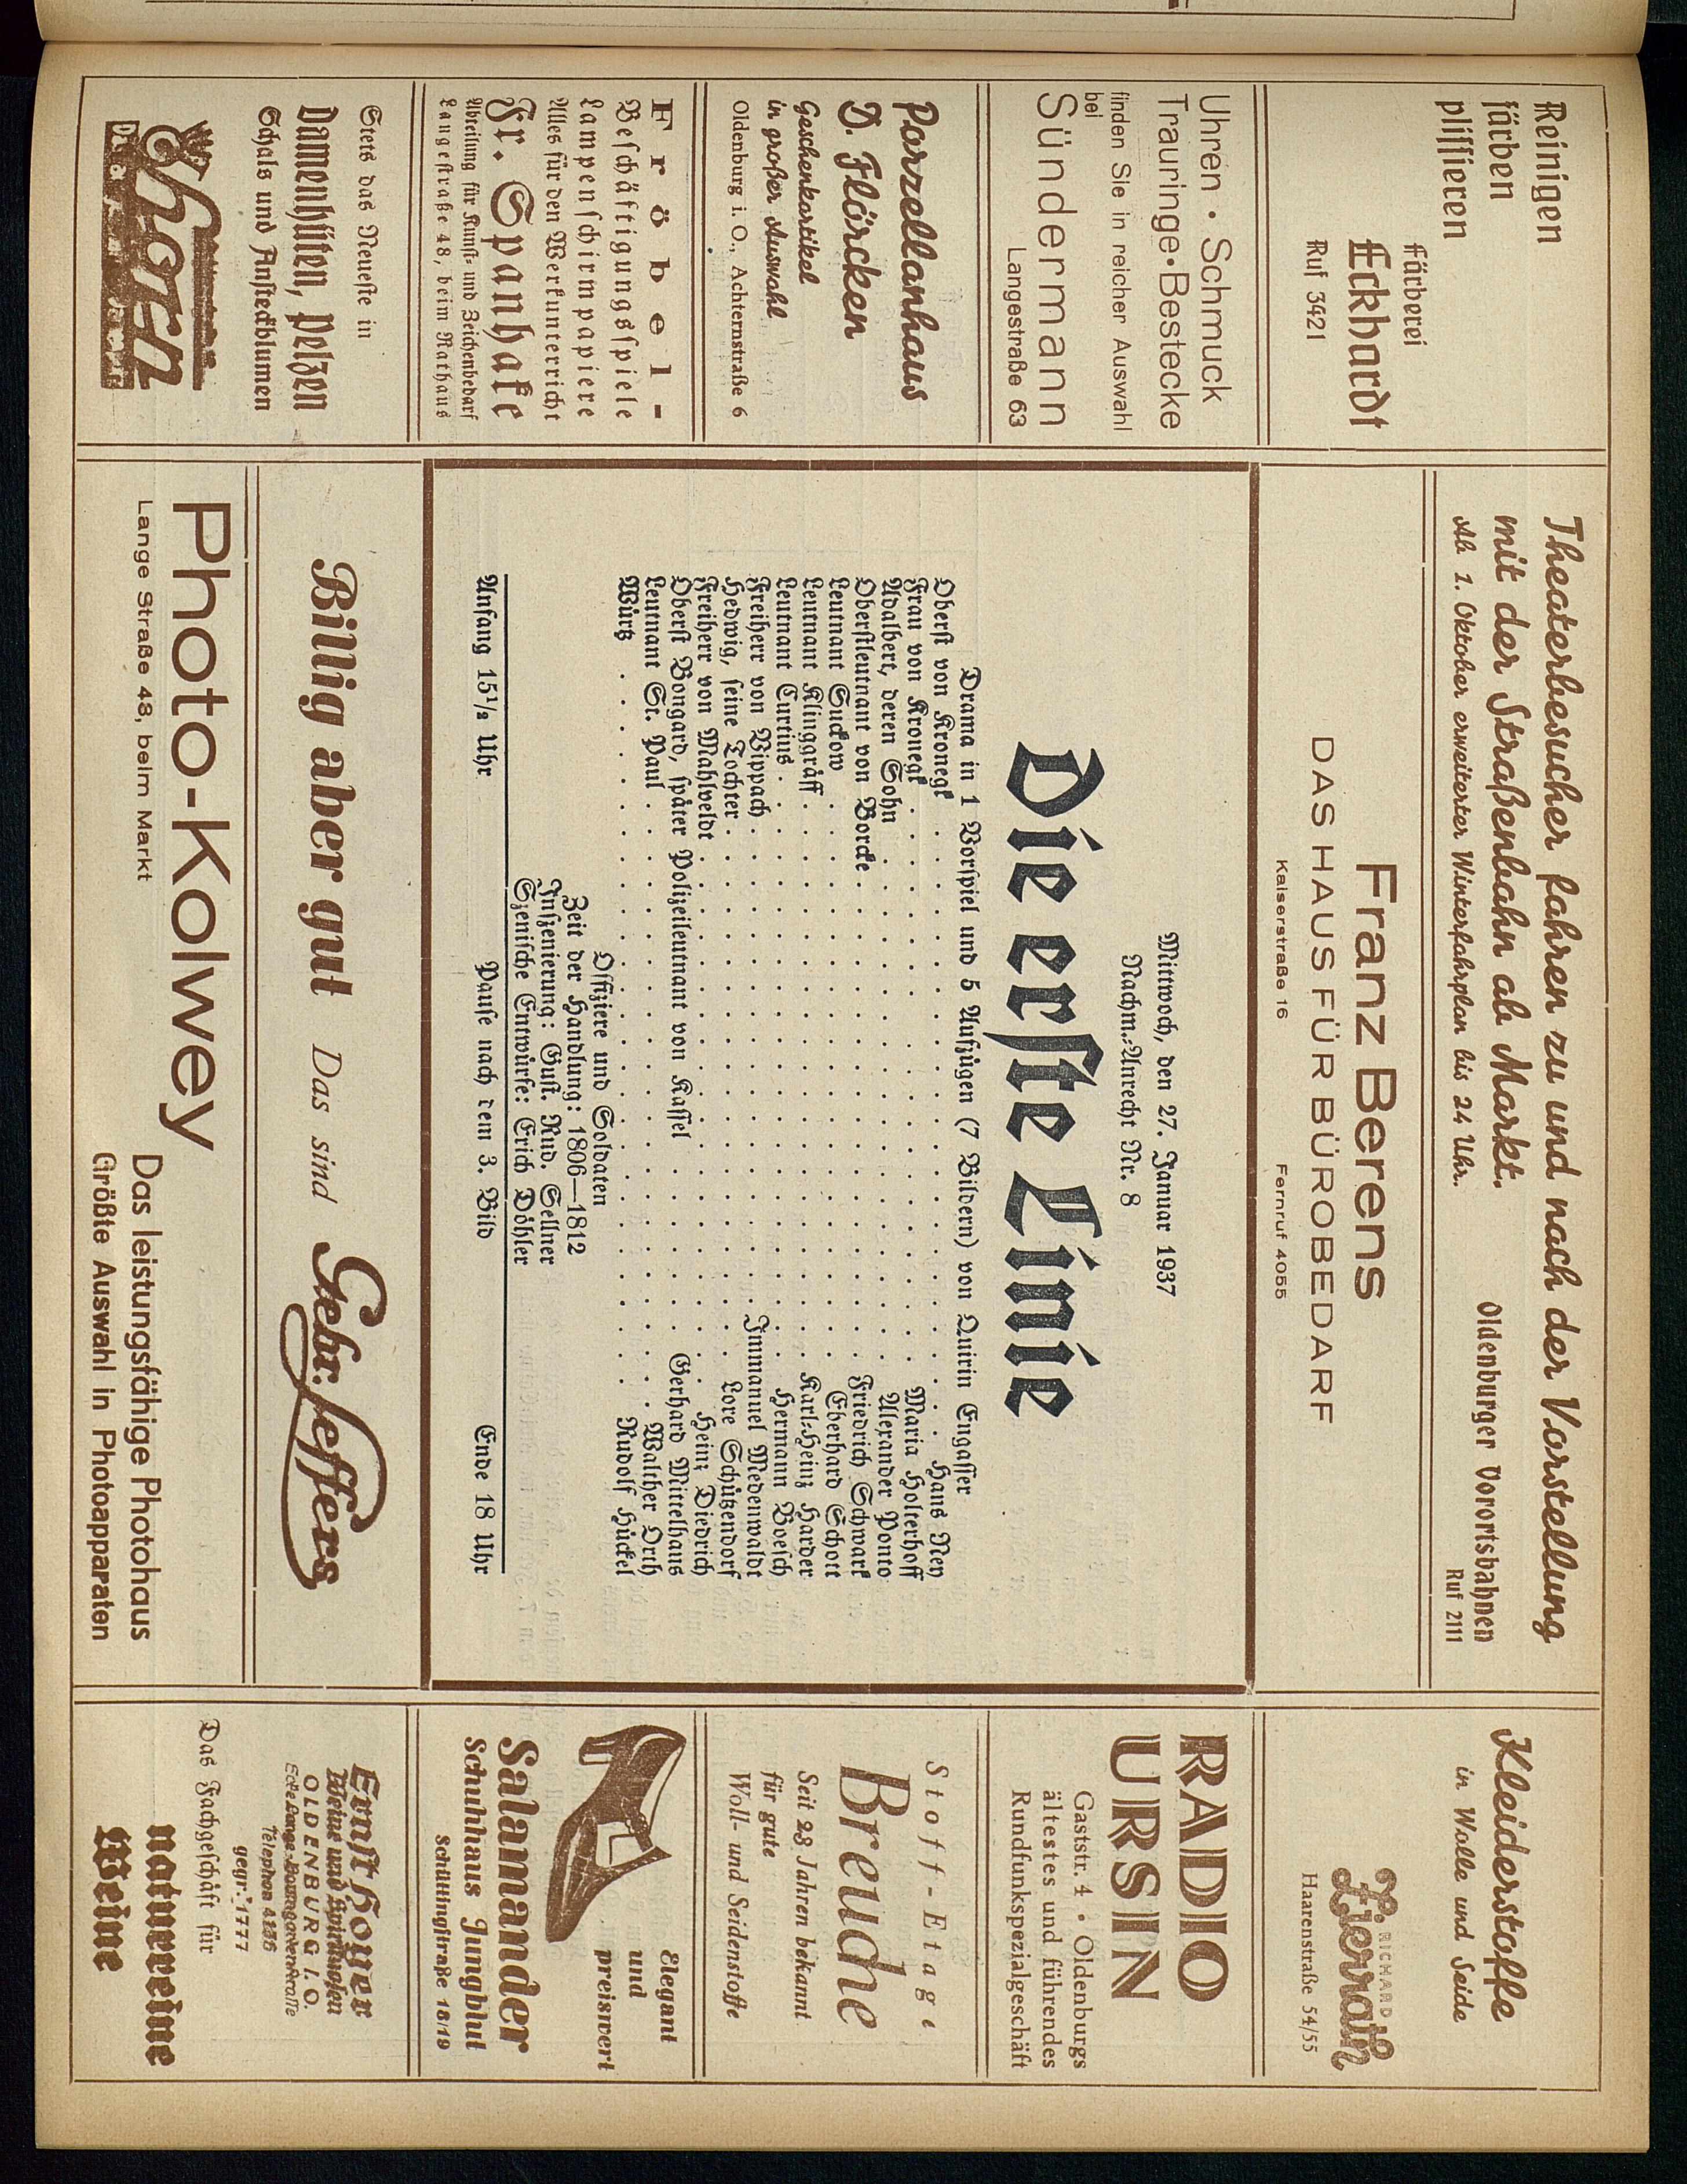 Reinigen
färben
plissieren
Färberei
Eckhardt
Ruf 3421
Uhren • Schmuck
Trauringe • Bestecke
finden Sie in reicher Auswahl
bei
Sündermann
Langestraße 63
Porzellanhaus
D. Flörcken
Geschenkartikel
in großer Auswahl
Oldenburg i. O., Achternstraße 6
Fröbel-
Beschäftigungsspiele
Lampenschirmpapiere
Alles für den Werkunterricht
Fr. Spanhake
Abteilung für Kunst- und Zeichenbedarf
Langestraße 48, beim Rathaus
Stets das Neueste in
Damenhüten, Pelzen
Schals und Ansteckblumen
Horen
Theaterbesucher fahren zu und nach der Vorstellung
mit der Straßenbahn ab Markt.
Ab 1. Oktober erweiterter Winterfahrplan bis 24 Uhr.
Oldenburger Vorortsbahnen
Ruf 2111
Franz Berens
DAS HAUS FÜR BÜROBEDARF
Kaiserstraße 16 Fernruf 4055
Mittwoch, den 27. Januar 1937
Nachm.-Anrecht Nr. 8
Die erste Linie
Drama in 1 Vorspiel und 5 Aufzügen (7 Bildern) von Quirin Engasser
Oberst von Kronegk . . . Hans Ney
Frau von Kronegk . . . Maria Holterhoff
Adalbert, deren Sohn . . . Alexander Ponto
Oberstleutnant von Borcke . . . Friedrich Schwark
Leutnant Suckow . . . Eberhard Schott
Leutnant Klinggräff . . . Karl-Heinz Harder
Leutnant Curtius . . . Hermann Boesch
Freiherr von Vippach . . . Immanuel Medenwaldt
Hedwig, seine Tochter . . . Lore Schützendorf
Freiherr von Mahlveldt . . . Heinz Diedrich
Oberst Bongard, später Polizeileutnant von Kassel . . . Gerhard Mittelhaus
Leutnant St. Paul . . . Walther Orth
Würtz . . . Rudolf Hückel
Offiziere und Soldaten
Zeit der Handlung: 1806—1812
Inszenierung: Gust. Rud. Sellner
Szenische Entwürfe: Erich Döhler
Anfang 15½ Uhr Pause nach dem 3. Bild Ende 18 Uhr
Billig aber gut Das sind Gebr. Leffers
Photo-Kolwey
Lange Straße 48, beim Markt
Das leistungsfähige Photohaus
Größte Auswahl in Photoapparaten
Kleiderstoffe
in Wolle und Seide
RICHARD
Lierath
Haarenstraße 54/55
RADIO
URSIN
Gaststr. 4 • Oldenburgs
ältestes und führendes
Rundfunkspezialgeschäft
Stoff-Etage
Breuche
Seit 28 Jahren bekannt
für gute
Woll- und Seidenstoffe
Elegant
und
preiswert
Salamander
Schuhhaus Jungblut
Schüttingstraße 18/19
Ernst Hoyer
Weine und Spirituosen
OLDENBURG i. O.
Ecke Lange-, Baumgartenstraße
Telephon 4186
gegr. 1777
Das Fachgeschäft für
naturreine
Weine